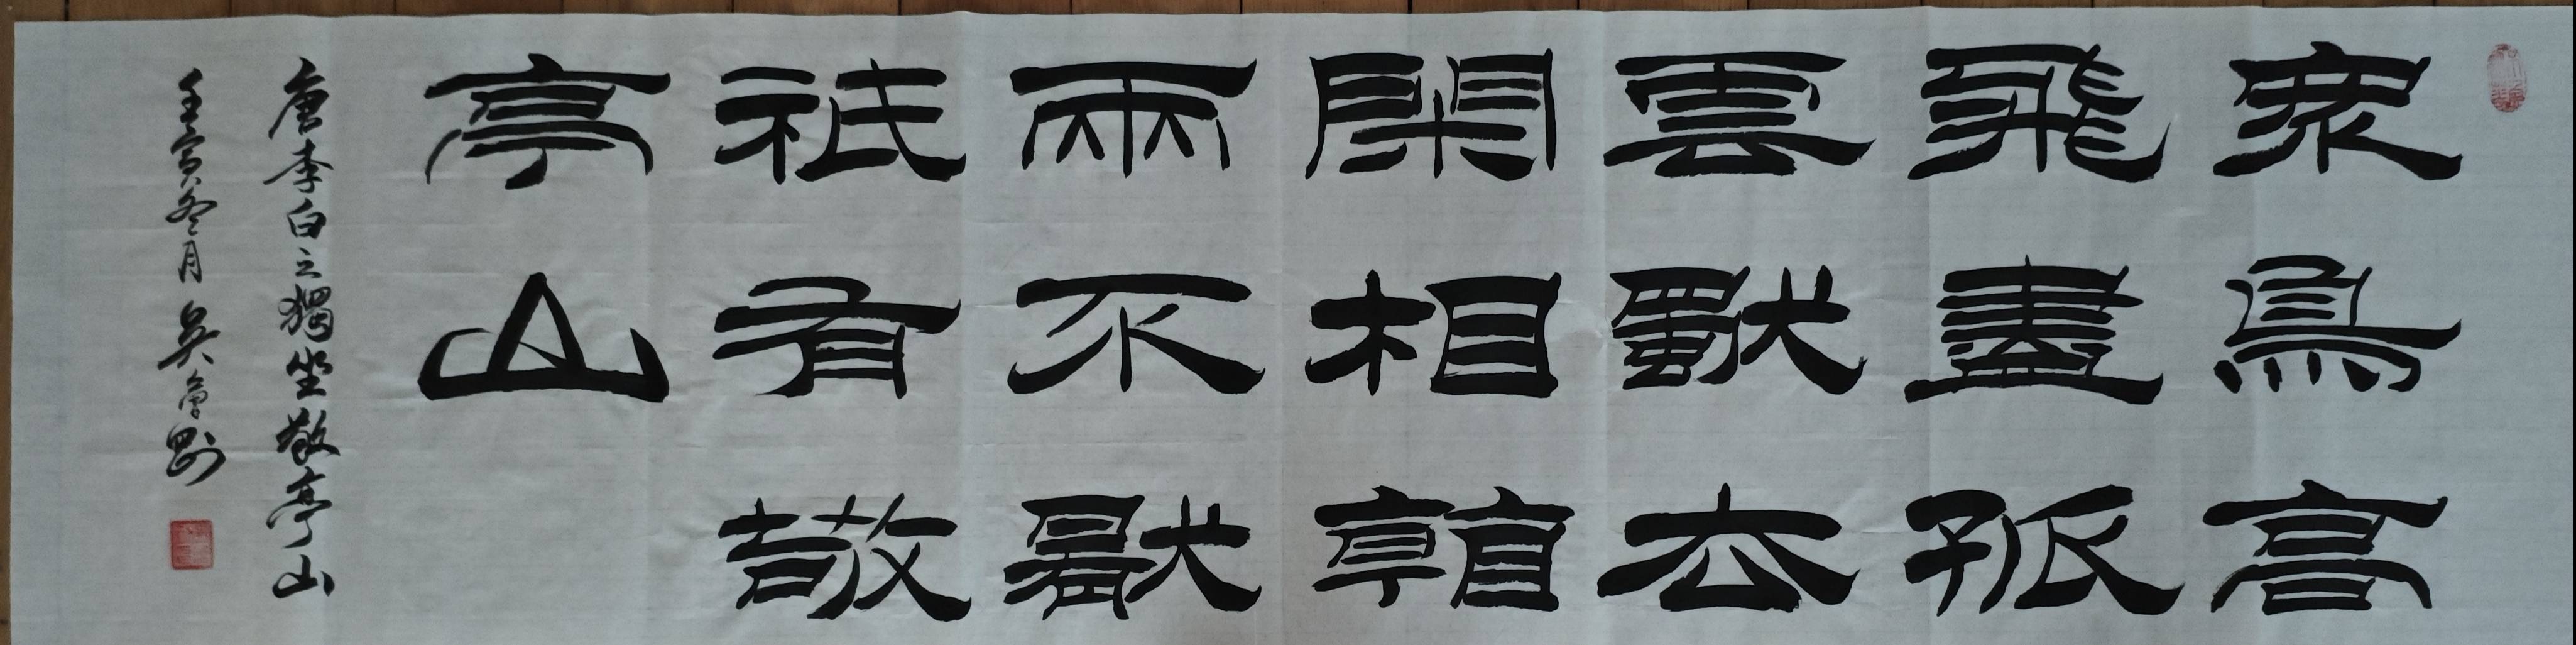 眾鳥高
飛盡孤
雲獨去
閑相看
兩不猒
祇有敬
亭山
唐李白之獨坐敬亭山
壬寅冬月 吳